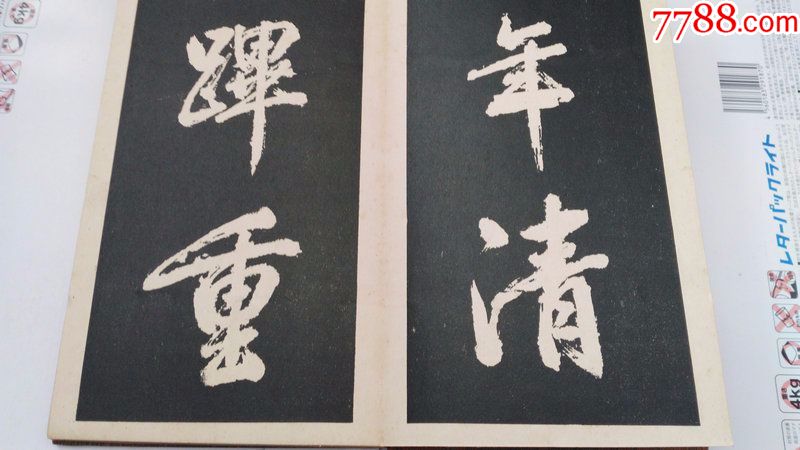 年清
蹕重
7788.com
レターパックライト
4kg
4kg